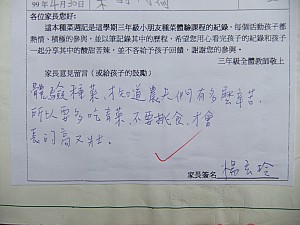 99年4月30日
各位家長您好:
這本種菜週記是這學期三年級小朋友種菜體驗課程的紀錄。每個活動孩子都
熱情、積極的參與,並以筆記錄其中的歷程,希望您用心看完孩子的紀錄和孩子
一起分享其中的酸甜苦辣,並不吝給予孩子回饋,謝謝您的參與。
三年級全體教師敬上
家長意見留言(或給孩子的鼓勵)
體驗種菜,才知道農夫們有多麼辛苦,
所以要多吃青菜,不要挑食,才會
長的高又壯。
家長簽名 楊玄玲